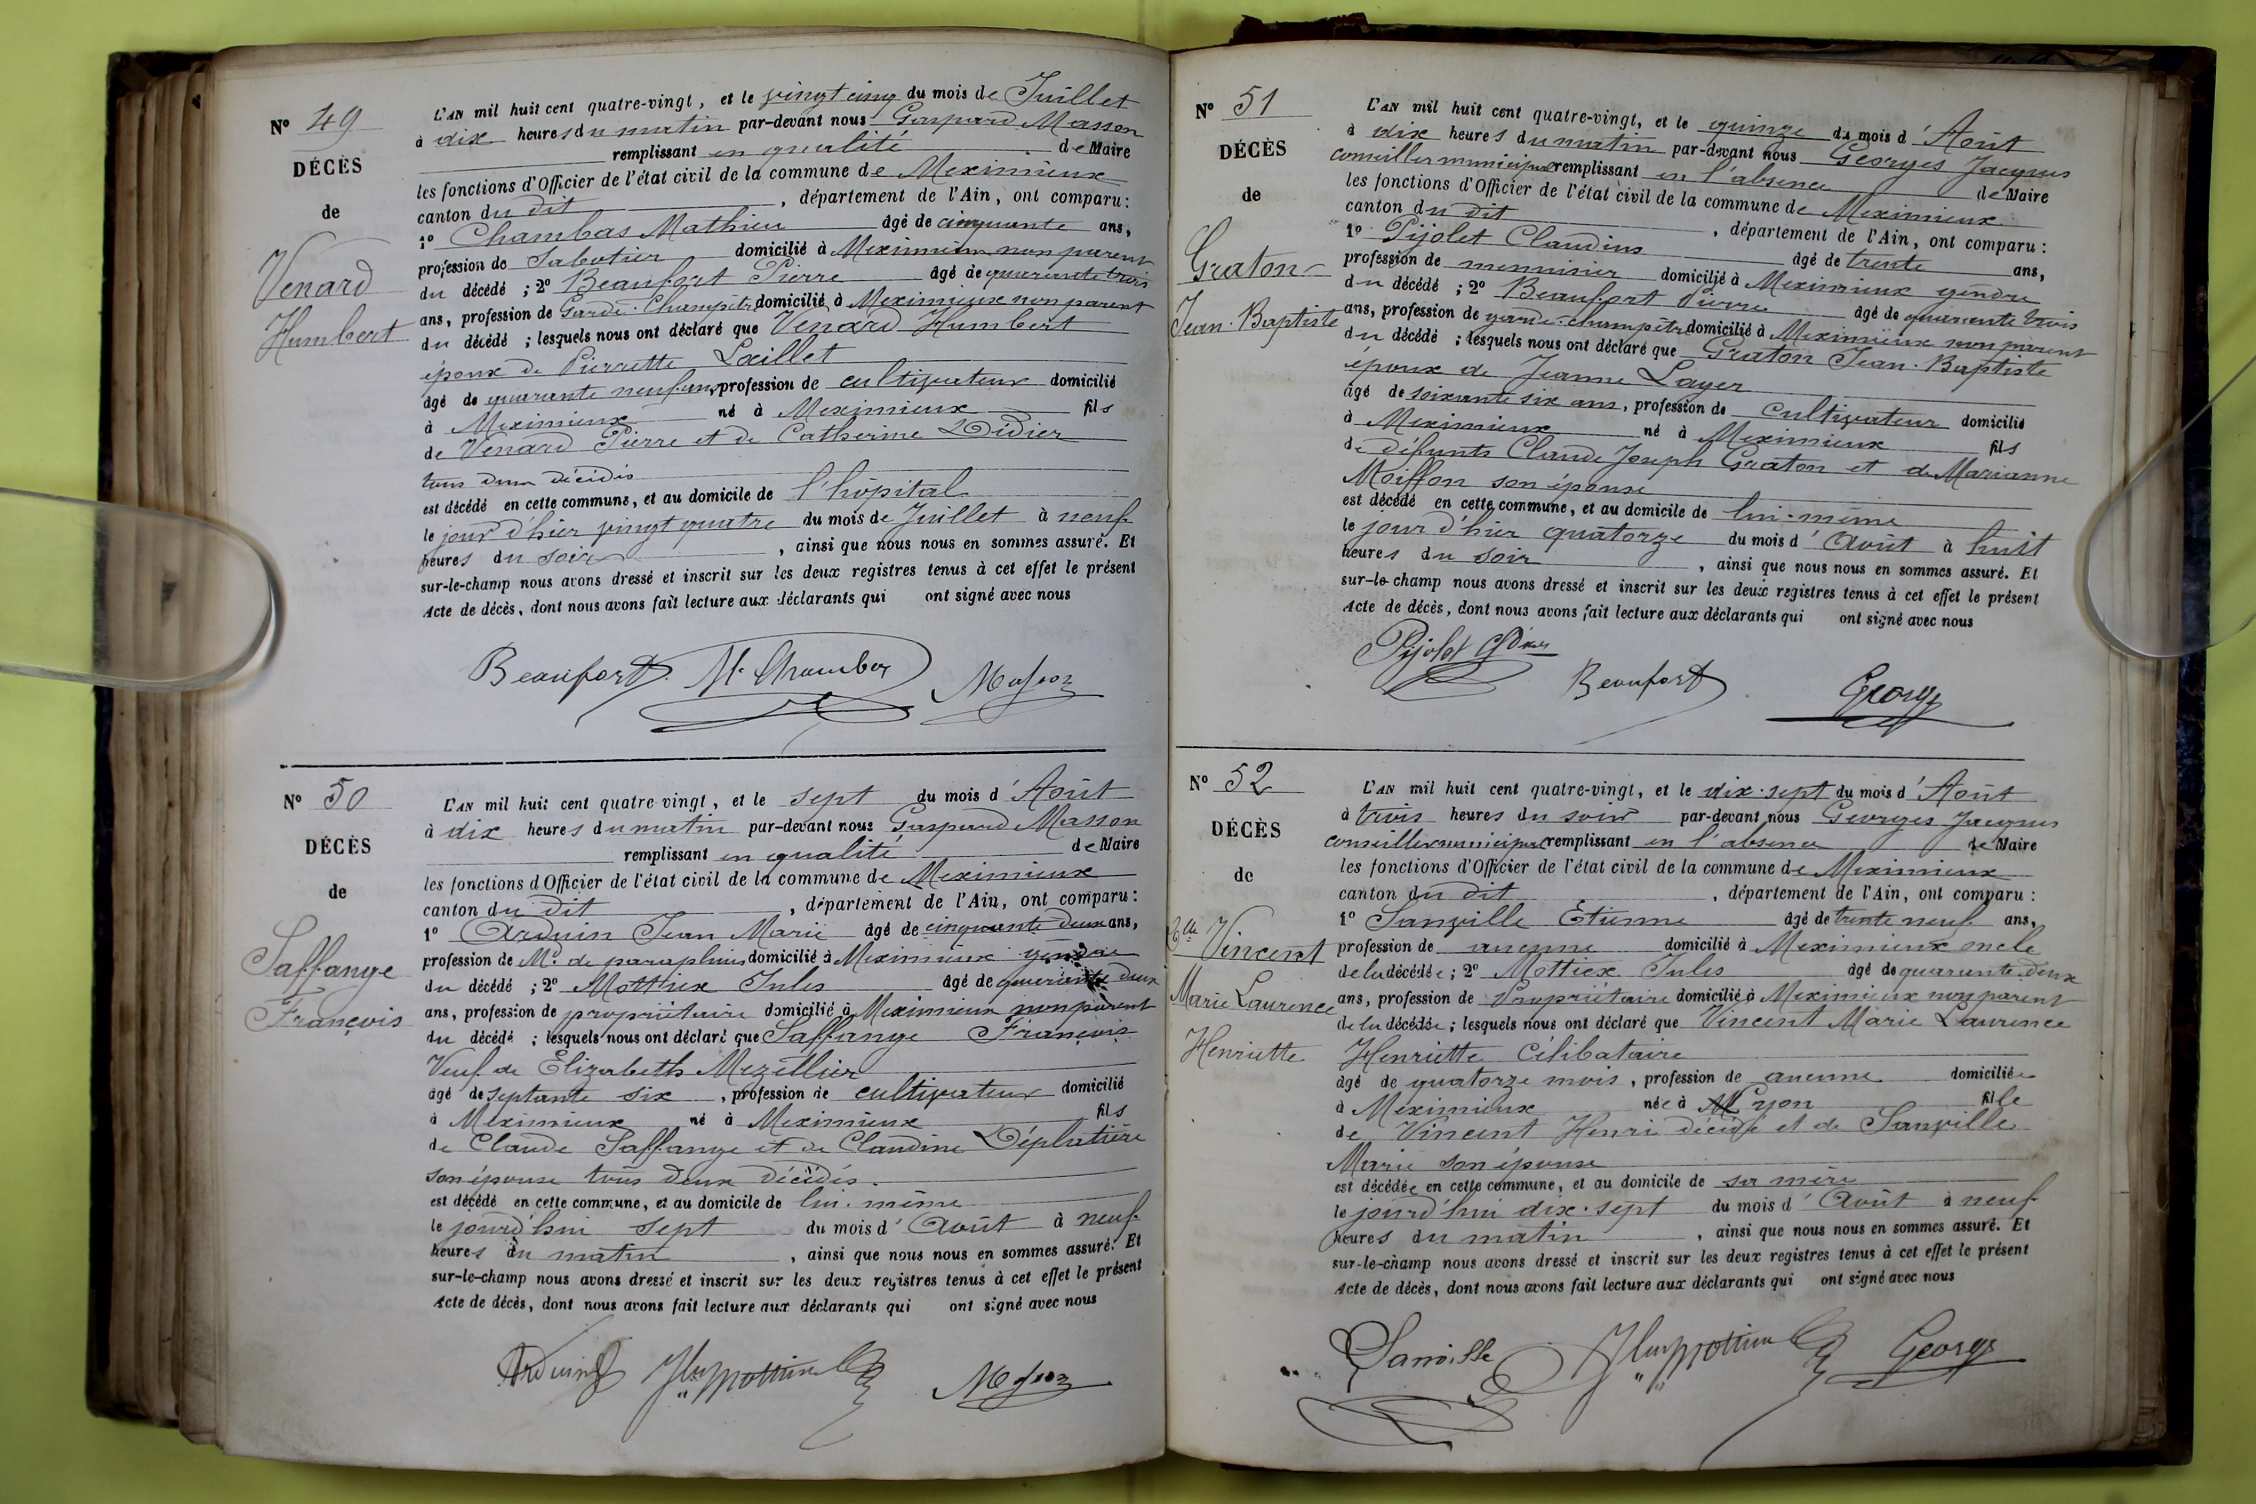 N° 49
DÉCÈS
de
Venard
Humbert
L'AN mil huit cent quatre-vingt, et le vingt cinq du mois de Juillet
à dix heures du matin par-devant nous Gaspard Masson
remplissant en qualité de Maire
les fonctions d'Officier de l'état civil de la commune de Meximieux
canton du dit, département de l'Ain, ont comparu:
1° Chambas Mathieu âgé de cinquante ans,
profession de Sabotier domicilié à Meximieux non parent
du décédé ; 2° Beaufort Pierre âgé de quarante trois
ans, profession de Garde-Champêtre domicilié à Meximieux non parent
du décédé ; lesquels nous ont déclaré que Venard Humbert
époux de Pierrette Lœillet
âgé de quarante neuf ans, profession de cultivateur domicilié
à Meximieux né à Meximieux fils
de Venard Pierre et de Catherine Didier
tous deux décédés
est décédé en cette commune, et au domicile de l'hôpital
le jour d'hier vingt quatre du mois de Juillet à neuf
heures du soir, ainsi que nous nous en sommes assuré. Et
sur-le-champ nous avons dressé et inscrit sur les deux registres tenus à cet effet le présent
Acte de décès, dont nous avons fait lecture aux déclarants qui ont signé avec nous
Beaufort M. Chambas Masson
N° 50
DÉCÈS
de
Saffange
François
L'AN mil huit cent quatre-vingt, et le sept du mois d'Août
à dix heures du matin par-devant nous Gaspard Masson
remplissant en qualité de Maire
les fonctions d'Officier de l'état civil de la commune de Meximieux
canton du dit, département de l'Ain, ont comparu:
1° Arduin Jean Marie âgé de cinquante deux ans,
profession de Md de parapluies domicilié à Meximieux gendre
du décédé ; 2° Mottiex Jules âgé de quarante deux
ans, profession de propriétaire domicilié à Meximieux non parent
du décédé ; lesquels nous ont déclaré que Saffange François
Veuf de Elizabeth Mezellier
âgé de septante six, profession de cultivateur domicilié
à Meximieux né à Meximieux fils
de Claude Saffange et de Claudine Déplatière
son épouse tous deux décédés.
est décédé en cette commune, et au domicile de lui-même
le jourd'hui sept du mois d'Août à neuf
heures du matin, ainsi que nous nous en sommes assuré. Et
sur-le-champ nous avons dressé et inscrit sur les deux registres tenus à cet effet le présent
Acte de décès, dont nous avons fait lecture aux déclarants qui ont signé avec nous
Arduin Masson
N° 51
DÉCÈS
de
Graton
Jean-Baptiste
L'AN mil huit cent quatre-vingt, et le quinze du mois d'Août
à dix heures du matin par-devant nous Georges Jacques
conseiller municipal remplissant en l'absence de Maire
les fonctions d'Officier de l'état civil de la commune de Meximieux
canton du dit, département de l'Ain, ont comparu:
1° Pijolet Claudius âgé de trente ans,
profession de menuisier domicilié à Meximieux gendre
du décédé ; 2° Beaufort Pierre âgé de quarante trois
ans, profession de garde-champêtre domicilié à Meximieux non parent
du décédé ; lesquels nous ont déclaré que Graton Jean-Baptiste
époux de Jeanne Layer
âgé de soixante six ans, profession de cultivateur domicilié
à Meximieux né à Meximieux fils
de défunts Claude Joseph Graton et de Marianne
Moiffon son épouse
est décédé en cette commune, et au domicile de lui-même
le jour d'hier quatorze du mois d'Août à huit
heures du soir, ainsi que nous nous en sommes assuré. Et
sur-le-champ nous avons dressé et inscrit sur les deux registres tenus à cet effet le présent
Acte de décès, dont nous avons fait lecture aux déclarants qui ont signé avec nous
Pijolet Beaufort George
N° 52
DÉCÈS
de
Vincent
Marie Laurence
Henriette
L'AN mil huit cent quatre-vingt, et le dix-sept du mois d'Août
à trois heures du soir par-devant nous Georges Jacques
conseiller municipal remplissant en l'absence de Maire
les fonctions d'Officier de l'état civil de la commune de Meximieux
canton du dit, département de l'Ain, ont comparu:
1° Sanville Etienne âgé de trente neuf ans,
profession de aucune domicilié à Meximieux oncle
de la décédée ; 2° Mottiex Jules âgé de quarante-deux
ans, profession de Propriétaire domicilié à Meximieux non parent
de la décédée ; lesquels nous ont déclaré que Vincent Marie Laurence
Henriette célibataire
âgé de quatorze mois, profession de aucune domiciliée
à Meximieux née à Lyon fille
de Vincent Henri décédé et de Sanville
Marie son épouse
est décédée en cette commune, et au domicile de sa mère
le jourd'hui dix-sept du mois d'Août à neuf
heures du matin, ainsi que nous nous en sommes assuré. Et
sur-le-champ nous avons dressé et inscrit sur les deux registres tenus à cet effet le présent
Acte de décès, dont nous avons fait lecture aux déclarants qui ont signé avec nous
Sanville George